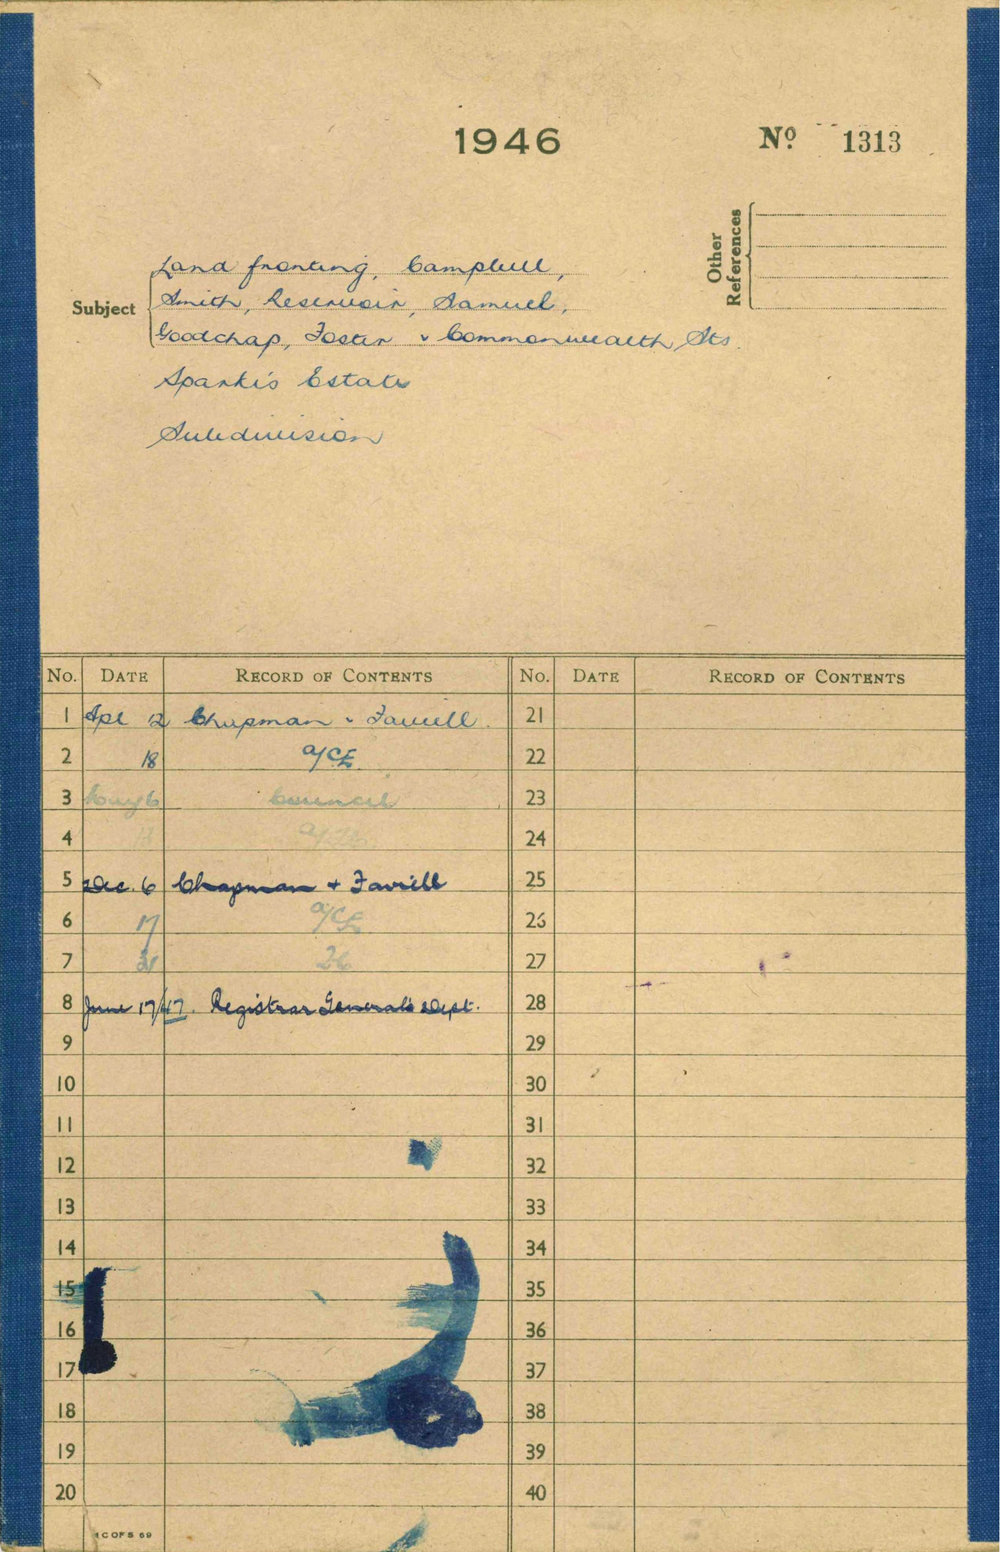 1946
Nº 1313
Other References
Subject
Land fronting, Campbell,
Smith, Reservoir, Samuel,
Goodchap, Foster & Commonwealth Sts.
Spark's Estate
Subdivision
No. DATE RECORD OF CONTENTS No. DATE RECORD OF CONTENTS
1 Apl 12 Chapman & Farrell. 21
2 18 a/CE 22
3 May 6 Council 23
4 13 24
5 Dec. 6 Chapman + Farrell 25
6 17 a/CE 26
7 27
8 June 17/47. Registrar General's Dept. 28
9 29
10 30
11 31
12 32
13 33
14 34
15 35
16 36
17 37
18 38
19 39
20 40
1 C OF S 69